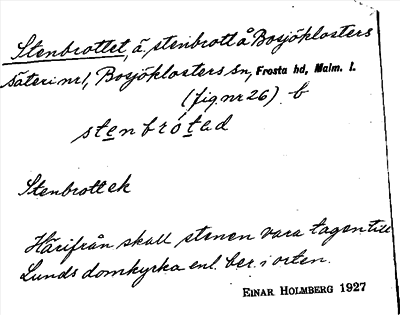 Stenbrottet, ä. stenbrott å Bosjöklosters
säteri nr 1, Bosjöklosters sn, Frosta hd, Malm. l.
(fig nr 26). b
stenbrótad
Stenbrott ek
Härifrån skall stenen vara tagen till
Lunds domkyrka enl. ber. i orten.
EINAR HOLMBERG 1927